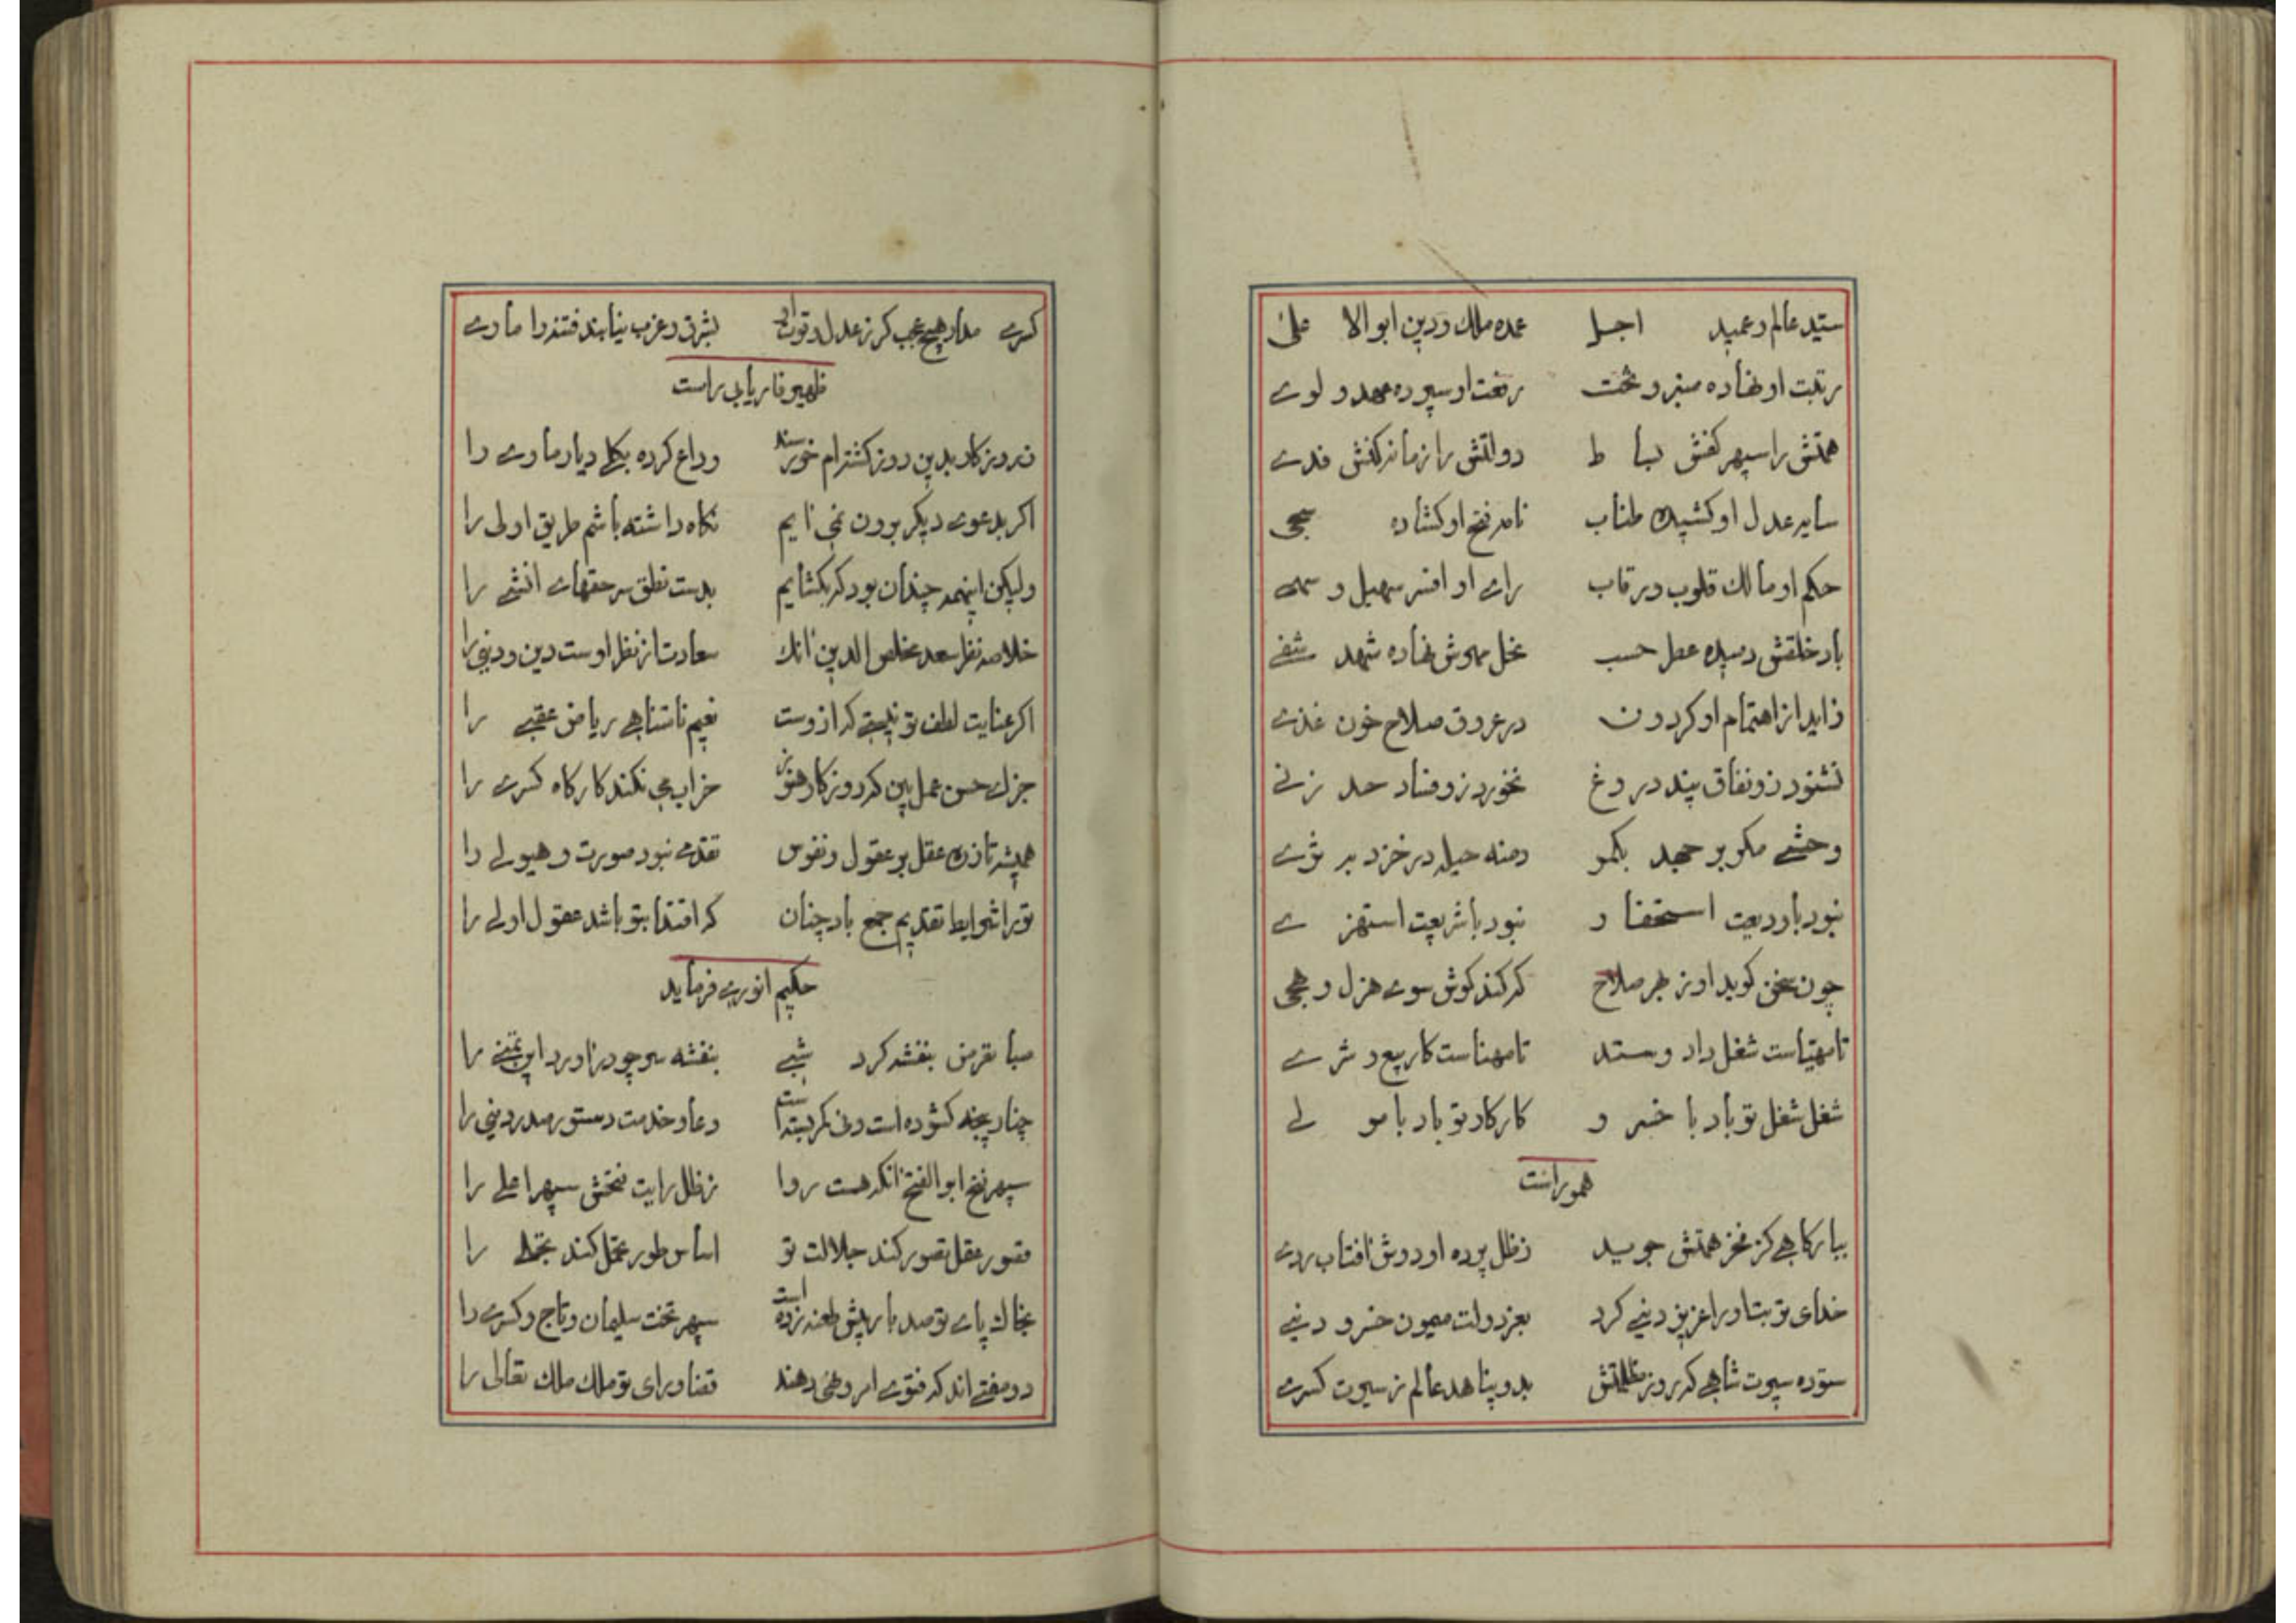 سید عالم و عمید اجل عمده ملک و دین ابوالا علی
رتبت او نهاده منبر و تخت رفعت او سپرده مهد و لوے
همتش را سپهر کفش بسا ط دولتش را زمانه کفش فدے
سایه عدل او کشیده طناب نامه فتح او کشاده سجی
حکم او مالک قلوب و رقاب راے او افسر سهیل و سهی
باد خلقش دمیده عطر حسب نحل مهرش نهاده شهد شفے
زاید از اهتمام او کردون در عروق صلاح خون غذے
نشنود زو نفاق پند دروغ نخورد زو فساد حد زنے
وحشے مکر بر جهد بکمو دمنه حیله در خزد به ثرے
نبود با ودیعت استخفا ف نبود با شریعت استهز ے
چون سخن کوید او ز بهر صلاح که کند کوش سوے هزل و هجی
تا مهیاست شغل داد و ستد تا مهناست کار بیع و شرے
شغل شغل تو باد با خسر و کار کار تو باد با مو لے
هموراست
ببارکاهے کز فخر همتش جوید ز ظل پرده او دوش آفتاب ردے
خدای توبتا و را عزیز دنیے کرد بعز دولت میمون خسرو دنیے
ستوده سیرت شاهے که روز مظلمتش بدو پناهد عالم ز سیرت کسرے
کسرے مدار هیچ عجب کر ز عدل و قوت او بشرق و غرب نیابند فتنه را ماوے
ظهیر فاریابی راست
ز روزکار بدین روز کشته‌ام خرسند وداع کرده بکلے دیار ماوے را
اکر بدعوے دیکر برون نمی آیم نکاه داشته باشم طریق اولی را
ولیکن اینهمه چندان بود که بکشایم بدست نطق سر حقهاے انشے را
خلاصه نظر سعد مخلص الدین آنک سعادت از نظر اوست دین و دنیی را
اکر عنایت لطف تو نیستے که ازوست نعیم نامتناهے ریاض عقبے را
جزاے حسن عمل بین که روزکار هنوز خراب می نکند کارکاه کسرے را
همیشه تا ز ره عقل بر عقول و نفوس تقدمے نبود صورت و هیولے را
تو را شرایط تقدیم جمع باد چنان که اقتدا بتو باشد عقول اولے را
حکیم انورے فرماید
صبا تعرض بنفشه کرد شبے بنفشه سر چو در آورد این تمنے را
چنار پنجه کشوده است و نی کمر بسته است دعا و خدمت دستور صدر دینی را
سپهر فتح ابوالفتح آنکه هست روا ز ظل رایت فتحش سپهر اعلے را
قصور عقل تصور کند جلالت تو اساس طور تحمل کند تجلے را
بخاک پاے تو صد بار بیش طعنه زده است سپهر تخت سلیمان و تاج و کسرے را
دو مفتے اند که فتوے امر و نهی دهند قضا و رای تو ملک ملک تعالی را